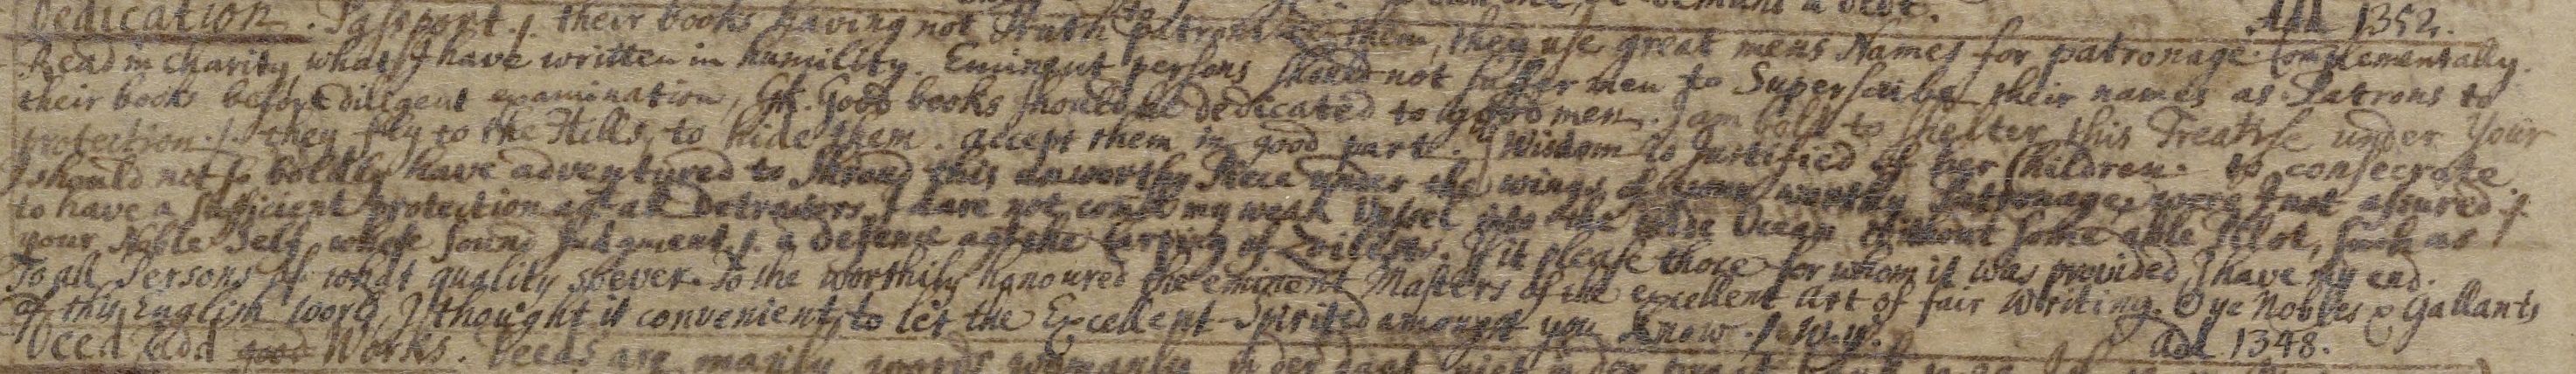 Add 1352.
Dedication. Passport. /. their books having not Truth to patronize them, they use great mens Names for patronage Complementally.
Read in charity, what I have written in humility. Eminent persons should not suffer men to Superscribe their names as Patrons to
their books before diligent examination, Gk. Good books should be dedicated to good men. I am bold to shelter this Treatise under Your
protection. /. they fly to the Hills, to hide them. accept them in good part. Wisdom is Justified of her Children. to consecrate
I should not so boldly have adventured to Shroud this unworthy Piece under the wings of your worthy Patronage, were I not assured /.
to have a sufficient protection agt all Detractors. I dare not comit my weak Vessel into the wide Ocean without some able Pilot, such as
your Noble Self, whose sound Judgment. /. a defense agt the Carping of Zoilists. If it please those for whom it was provided, I have my end.
To all Persons of what quality soever. To the worthily honoured the eminent Masters of the excellent Art of fair Writing. O ye Nobles & Gallants
of this English World, I thought it convenient to let the Excellent-Spirited amongst you know. /. W. y.
Deed Add good Works. Deeds are manly, words womanly. Add 1348.